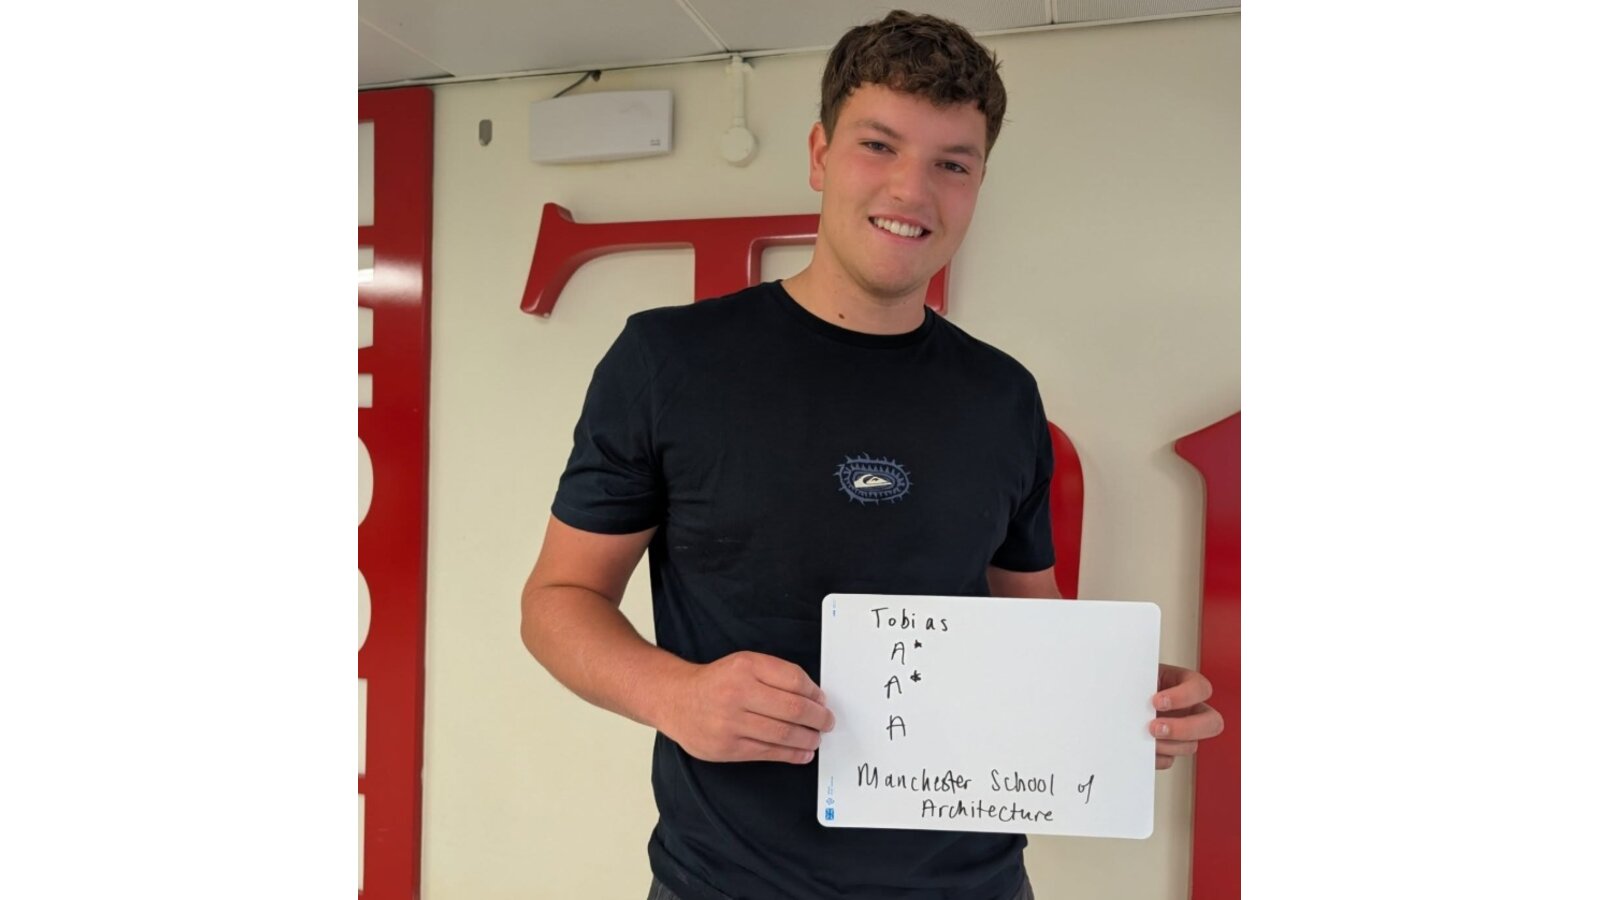 Tobias
A*
A*
A
Manchester School of
Architecture